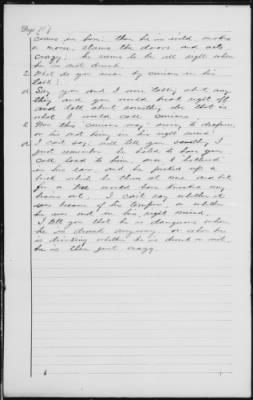 Page
comes in him; then he is wild, makes
a noise, slams the doors and acts
crazy; he seems to be all right when
he is not drunk.
Q. What do you mean by curious in his
talk?
A. Say you and I were talking about any
thing and you would break right off
and talk about something else that is
what I would call curious.
Q. Was this curious way owing to deafness,
or his not being in his right mind?
A. I can't say; will tell you something I
just remember he hated to have you
call loud to him, once I hollered
in his ear and he picked up a
brick which he threw at me and but
for a tree would have knocked my
brains out. I can't say whether it
was because of his temper, or whether
he was not in his right mind.
I tell you that he is dangerous when
he is drunk anyway, or when he
is drinking whether he is drunk or not,
he is then just crazy.